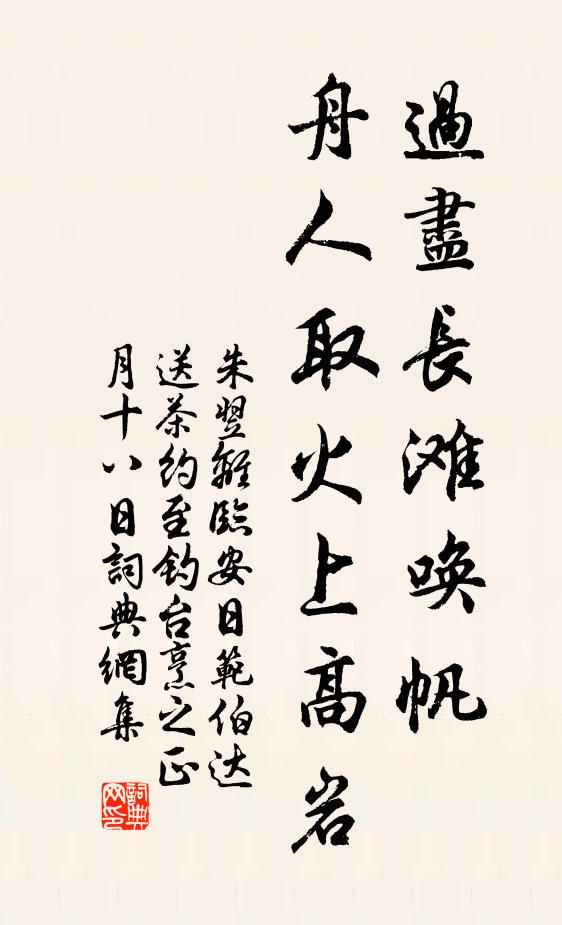 過盡長滩喚帆
舟人取火上高岩
朱翌離臨安日範伯达
送茶约至钓台烹之正
月十八日詞典網集
詞典网印